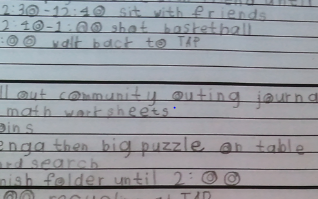 2:30-12:40 sit with friends
2:40-1:00 shot basketball
:00 walk back to TAP
ll out community outing journa
math worksheets
oins
enga then big puzzle on table
ord search
nish folder until 2:00
00